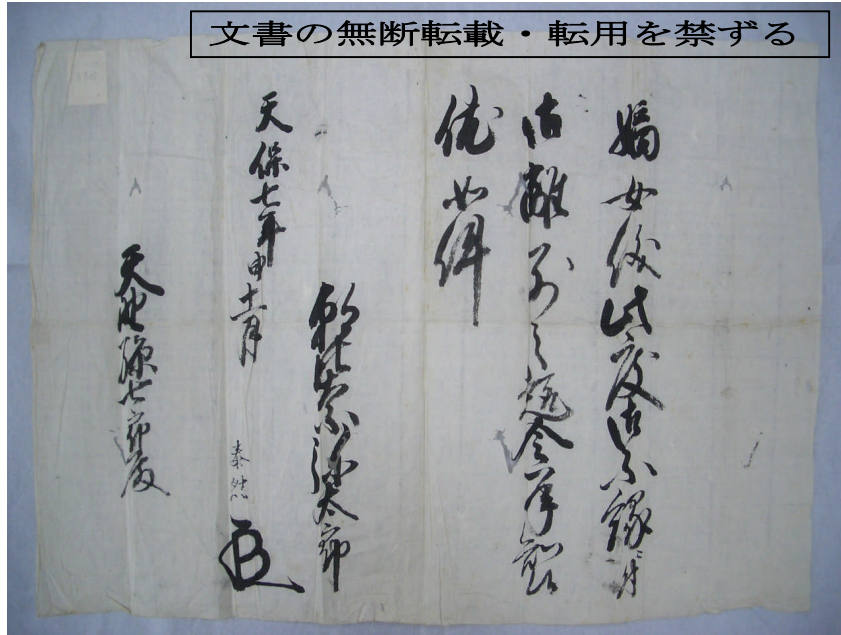 文書の無断転載・転用を禁ずる
嫡女儀此度御不縁ニ付
御離別之趣令承知
候如件
天保七年申十一月
朝比奈弥太郎
泰然
天野弥七郎殿